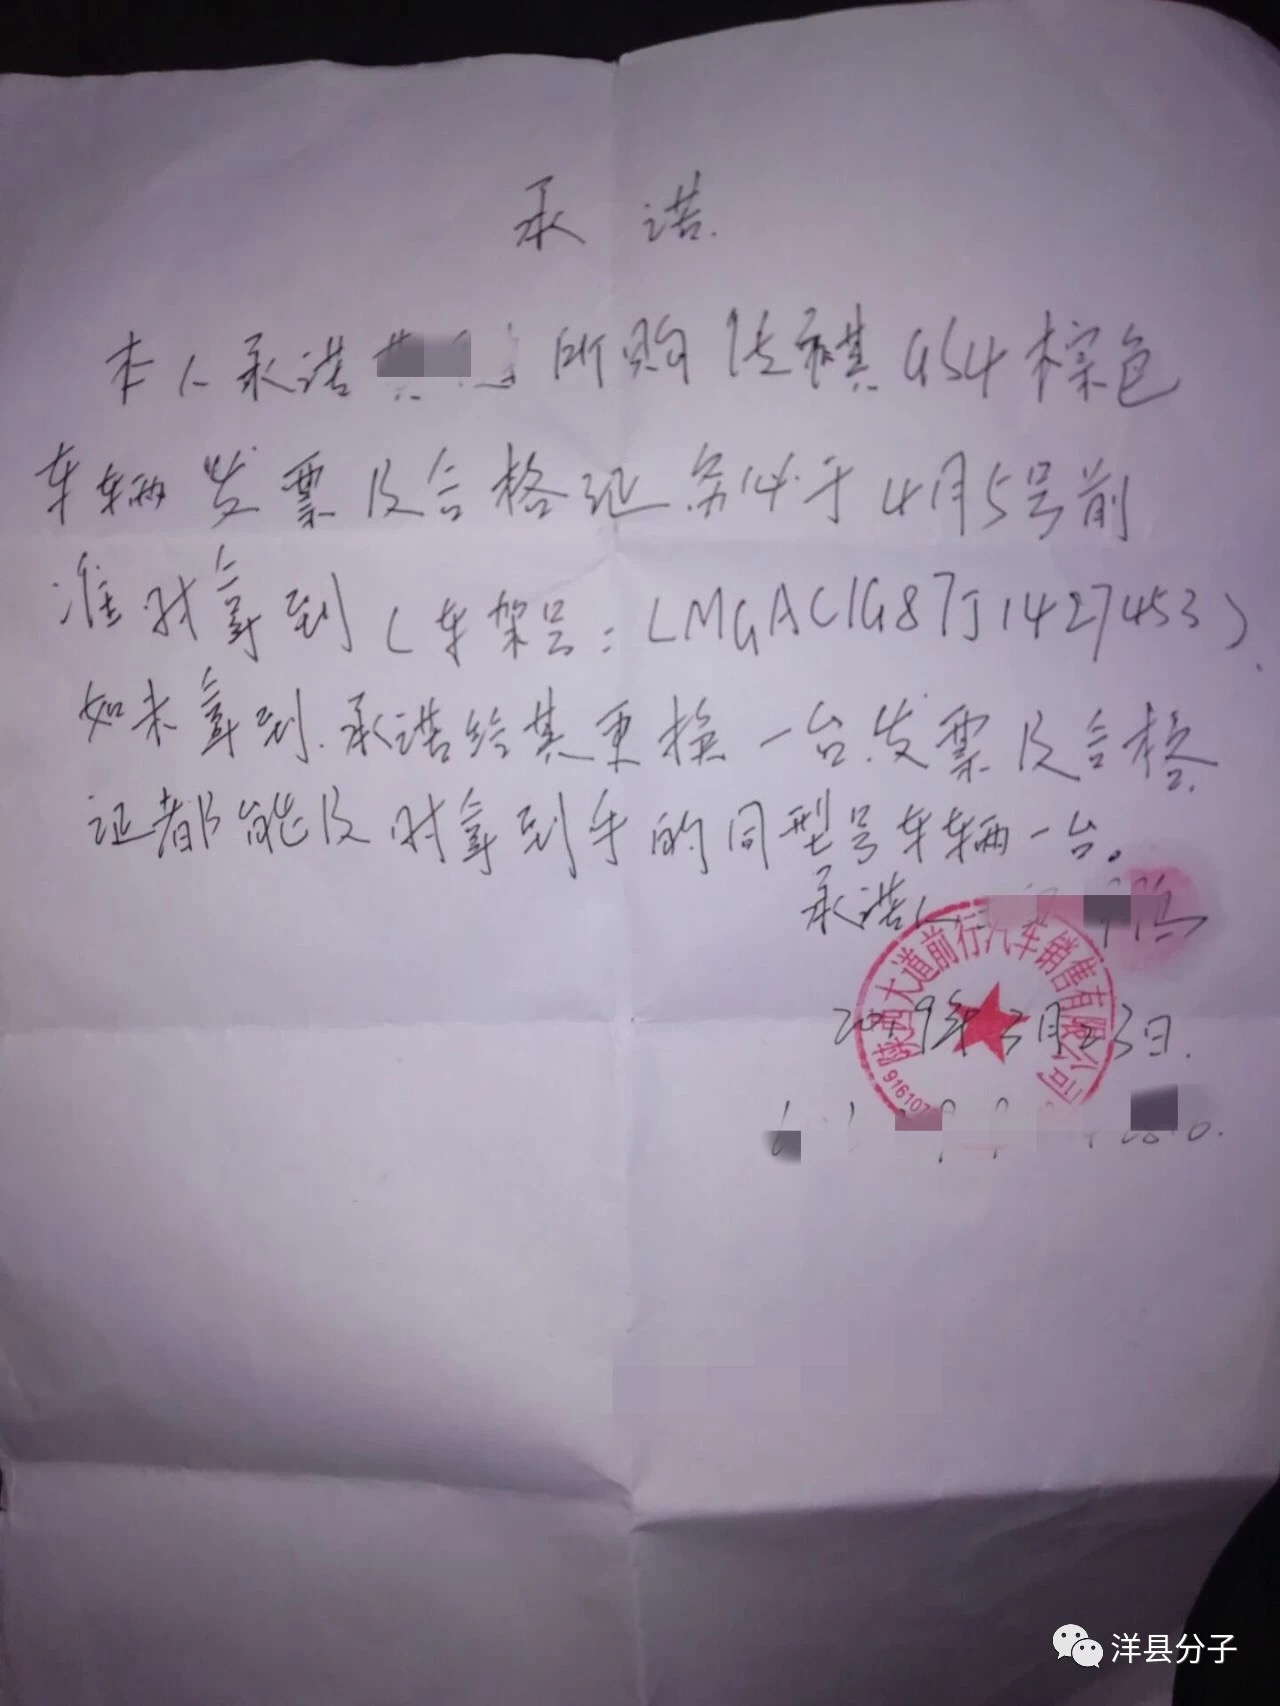 承诺.
本人承诺 所购传祺GS4棕色
车辆发票及合格证条件于4月5号前
准时拿到(车架号:LMGAC1G87J1427453).
如未拿到.承诺给其更换一台发票及合格
证都能及时拿到手的同型号车辆一台。
承诺人
陕西大道前行汽车销售有限公司
2019年3月23日.
916107
洋县分子